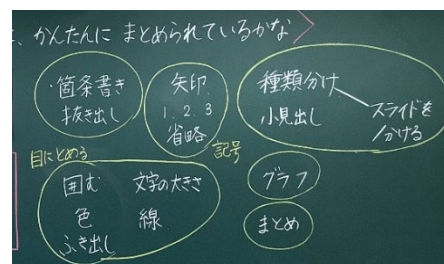 、かんたんに まとめられているかな
・箇条書き
抜き出し
矢印
1.2.3
省略
記号
種類分け
小見出し
スライドを
分ける
目にとめる
囲む 文字の大きさ
色 線
ふき出し
グラフ
まとめ